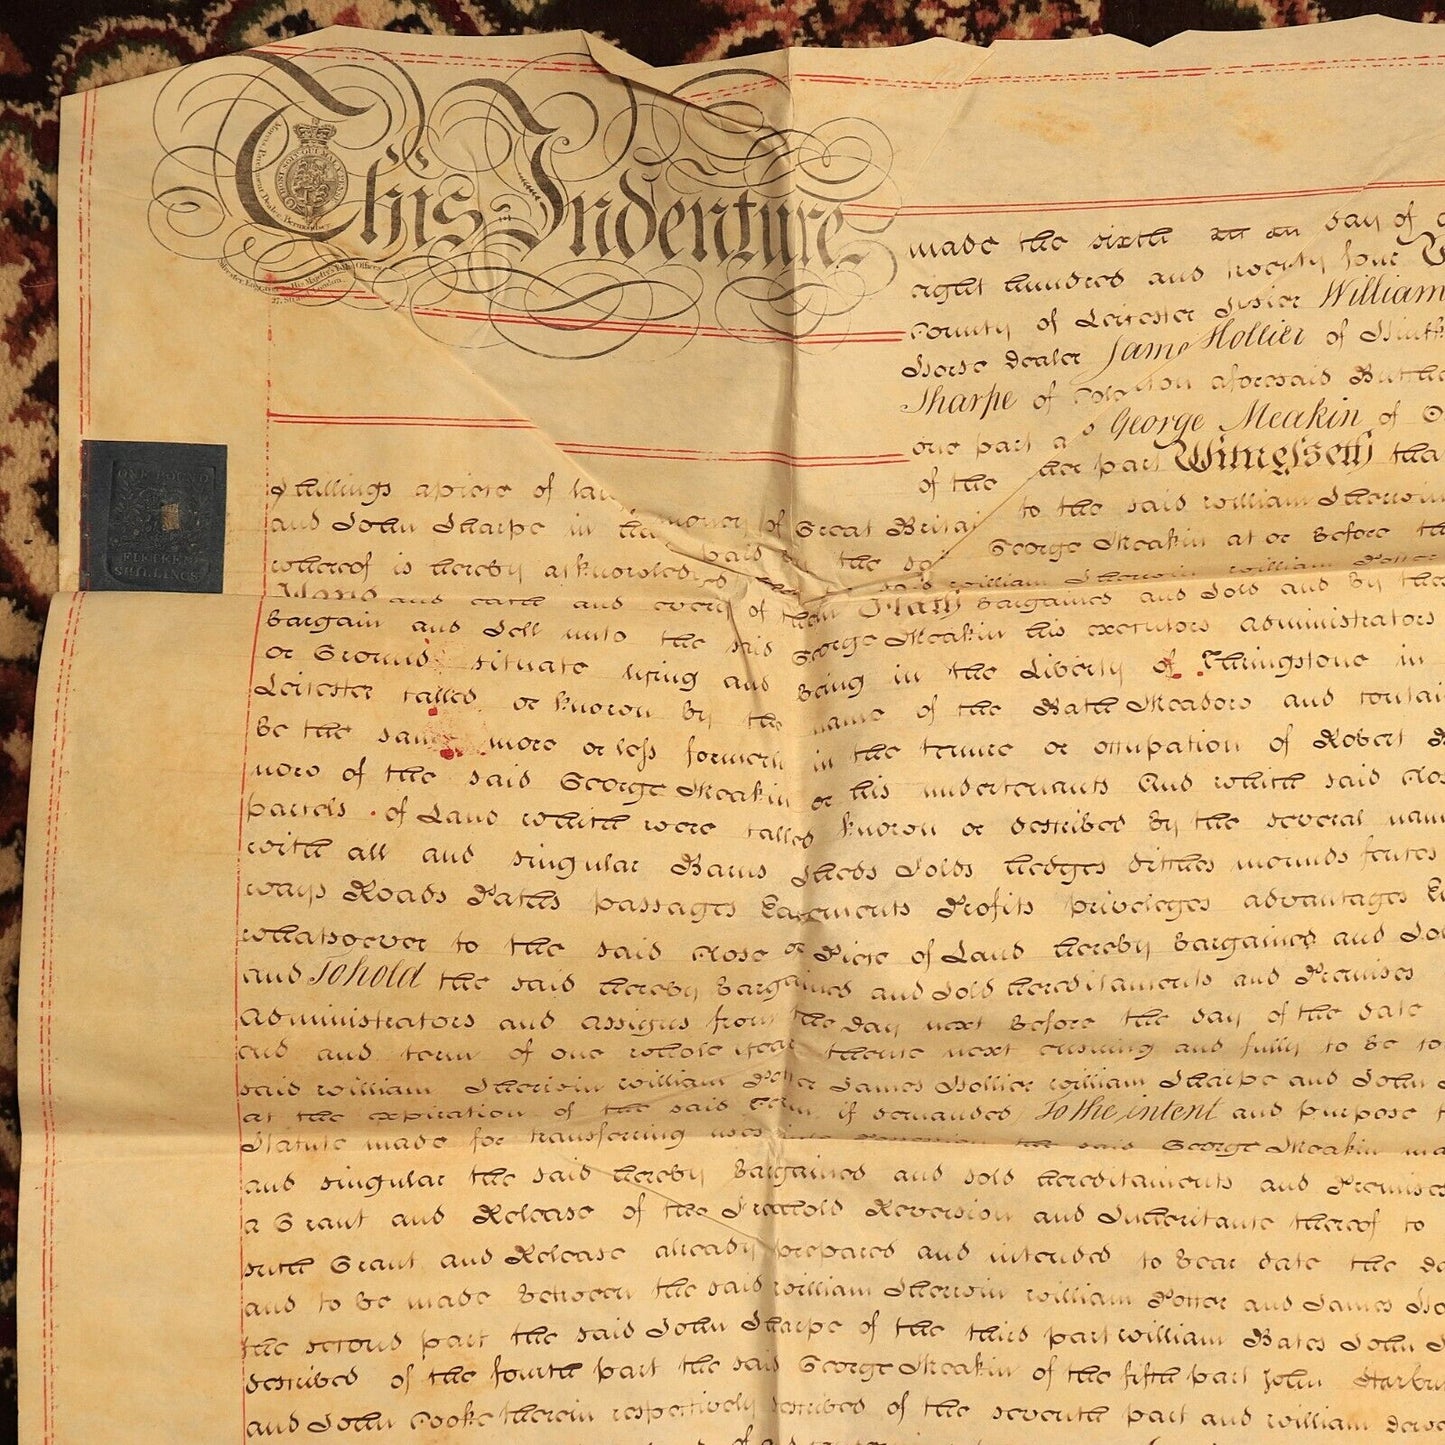 This Indenture
made the sixth day of
eight hundred and twenty four
County of Leicester William
Horse Dealer James Hollier of
Sharpe of aforesaid
one part George Meakin of
of the part Witnesseth that
Shillings apiece of
and John Sharpe in money of Great to the said William Sherwin
whereof is hereby acknowledged paid by the George Meakin at or before the
said William Sherwin William Potter
and each and every of them Have Bargained and Sold and by these
Bargain and Sell unto the said George Meakin his executors administrators
or Ground situate lying and being in the Liberty of Thringstone in
Leicester called or known by the name of the Bath Meadow and
be the same more or less formerly in the tenure or occupation of Robert
now of the said George Meakin or his undertenants And which said
parcels of Land which were called known or described by the several
with all and singular Barns Sheds Folds hedges ditches mounds fences
ways Roads Paths passages Easements Profits priveleges advantages
whatsoever to the said Close or Piece of Land hereby bargained and
and To hold the said hereby Bargained and Sold hereditaments and Premises
administrators and assigns from the day next before the day of the date
end and term of one whole year thence next ensuing and fully to be
said William Sherwin William Potter James Hollier William Sharpe and John
at the expiration of the said term if demanded To the intent and purpose
Statute made for transferring uses into possession the said George Meakin
and singular the said hereby Bargained and sold hereditaments and Premises
a Grant and Release of the Freehold Reversion and Inheritance thereof to
such Grant and Release already prepared and intended to bear date the
and to be made Between the said William Sherwin William Potter and James
the second part the said John Sharpe of the third part William Bates John
described of the fourth part the said George Meakin of the fifth part John
and John Cooke therein respectively described of the seventh part and William
ONE POUND
FIFTEEN
SHILLINGS